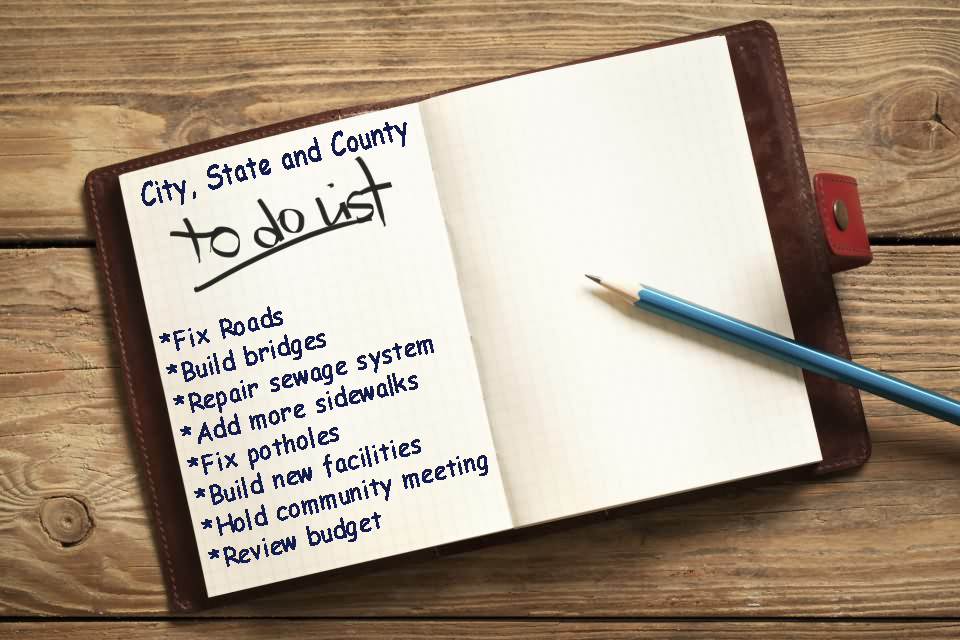 City, State and County
to do list
*Fix Roads
*Build bridges
*Repair sewage system
*Add more sidewalks
*Fix potholes
*Build new facilities
*Hold community meeting
*Review budget